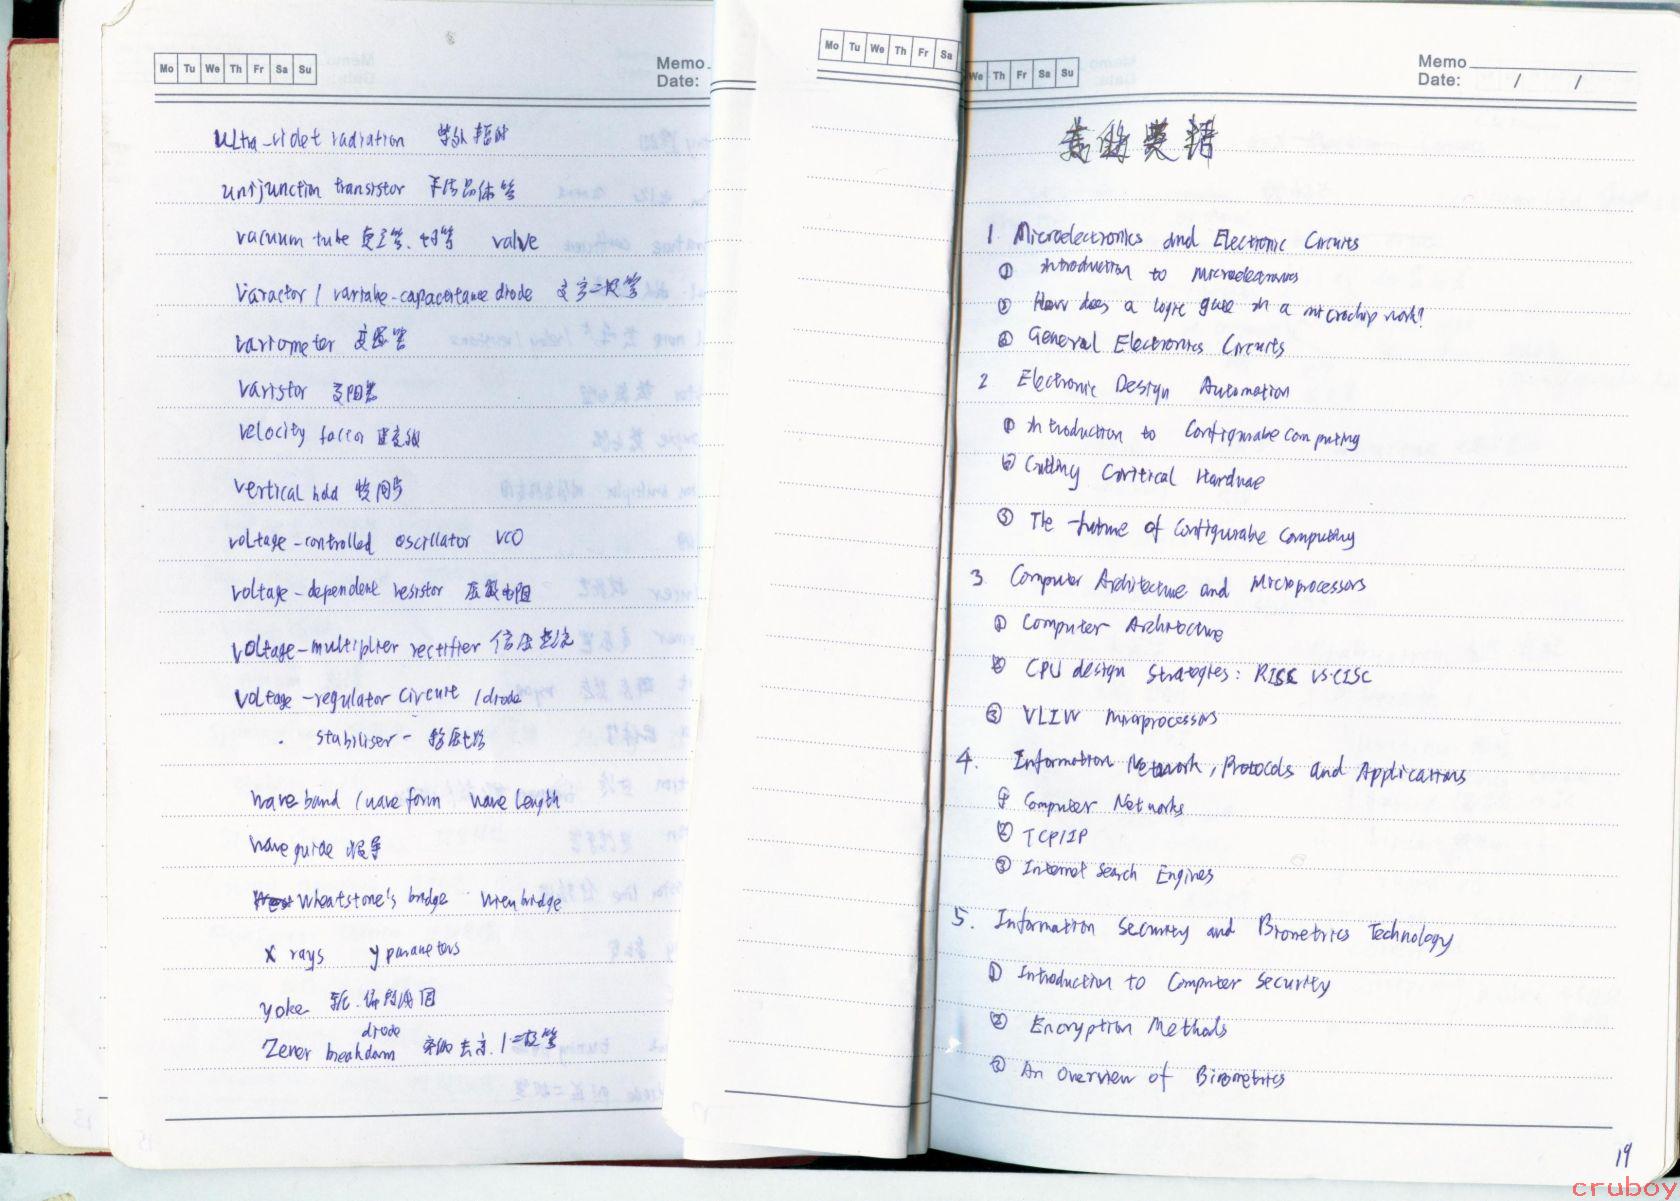 Mo Tu We Th Fr Sa Su
Memo.
Date:
Ultra-violet radiation
unijunction transistor
vacuum tube 真空管. 电子管 valve
Varactor / variable-capacitance diode 变容二极管
variometer
Varistor 变阻器
velocity factor
vertical hold
voltage-controlled oscillator VCO
voltage-dependent resistor 压敏电阻
voltage-multiplier rectifier 倍压整流
voltage-regulator circuit / diode
stabiliser - 稳压电路
wave band / wave form wave length
wave guide 波导
Wheatstone's bridge wien bridge
X rays y parameters
yoke
diode
Zener breakdown 齐纳击穿. / 二极管
Mo Tu We Th Fr Sa
We Th Fr Sa Su
Memo
Date: / /
英语
1. Microelectronics and Electronic Circuits
① Introduction to Microelectronics
② How does a logic gate in a microchip work?
③ General Electronics Circuits
2 Electronic Design Automation
① Introduction to Configurable computing
② Cortical Hardware
③ The future of Configurable Computing
3. Computer Architecture and Microprocessors
① Computer Architecture
② CPU design Strategies: RISC VS.CISC
③ VLIW Microprocessors
4. Information Network, Protocols and Applications
① Computer Networks
② TCP/IP
③ Internet Search Engines
5. Information Security and Biometrics Technology
① Introduction to Computer Security
② Encryption Methods
③ An Overview of Biometrics
19
cruboy